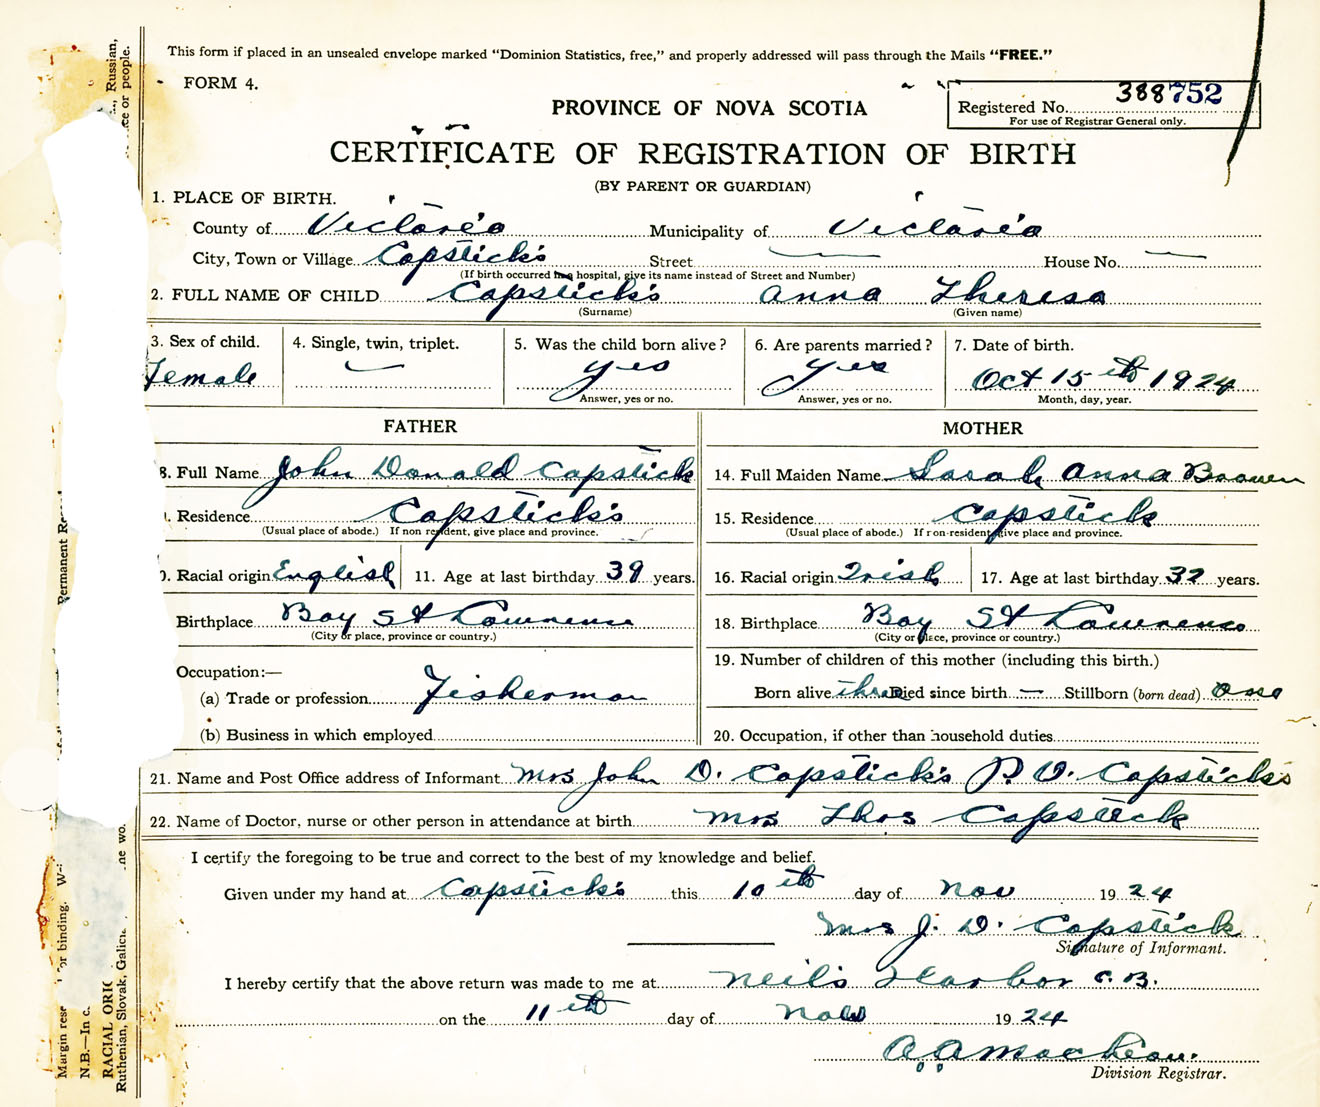 This form if placed in an unsealed envelope marked "Dominion Statistics, free," and properly addressed will pass through the Mails "FREE."
FORM 4.
Registered No. 388752
For use of Registrar General only.
PROVINCE OF NOVA SCOTIA
CERTIFICATE OF REGISTRATION OF BIRTH
(BY PARENT OR GUARDIAN)
1. PLACE OF BIRTH.
County of Victoria Municipality of Victoria
City, Town or Village Capstick's Street — House No. —
(If birth occurred in a hospital, give its name instead of Street and Number)
2. FULL NAME OF CHILD Capstick's Anna Theresa
(Surname) (Given name)
3. Sex of child. 4. Single, twin, triplet. 5. Was the child born alive? 6. Are parents married? 7. Date of birth.
Female — yes yes Oct 15th 1924
Answer, yes or no. Answer, yes or no. Month, day, year.
FATHER MOTHER
8. Full Name John Donald Capstick 14. Full Maiden Name Sarah Anna
Residence Capstick's 15. Residence Capstick
(Usual place of abode.) If non resident, give place and province. (Usual place of abode.) If non-resident, give place and province.
Racial origin English 11. Age at last birthday 39 years. 16. Racial origin Irish 17. Age at last birthday 32 years.
Birthplace Bay St Lawrence 18. Birthplace Bay St Lawrence
(City or place, province or country.) (City or place, province or country.)
Occupation:— 19. Number of children of this mother (including this birth.)
(a) Trade or profession Fisherman Born alive three Died since birth — Stillborn (born dead) one
(b) Business in which employed 20. Occupation, if other than household duties
21. Name and Post Office address of Informant Mrs John D. Capstick's P.O. Capstick's
22. Name of Doctor, nurse or other person in attendance at birth Mrs Thos Capstick
I certify the foregoing to be true and correct to the best of my knowledge and belief.
Given under my hand at Capstick's this 10th day of Nov 1924
Mrs J. D. Capstick
Signature of Informant.
I hereby certify that the above return was made to me at Neil's Harbor C.B.
on the 11th day of Nov 1924
A A MacLean.
Division Registrar.
Margin rese for binding.
Permanent Re
N.B.—In c
RACIAL ORI
Ruthenian, Slovak, Galici
Russian,
ce or people.